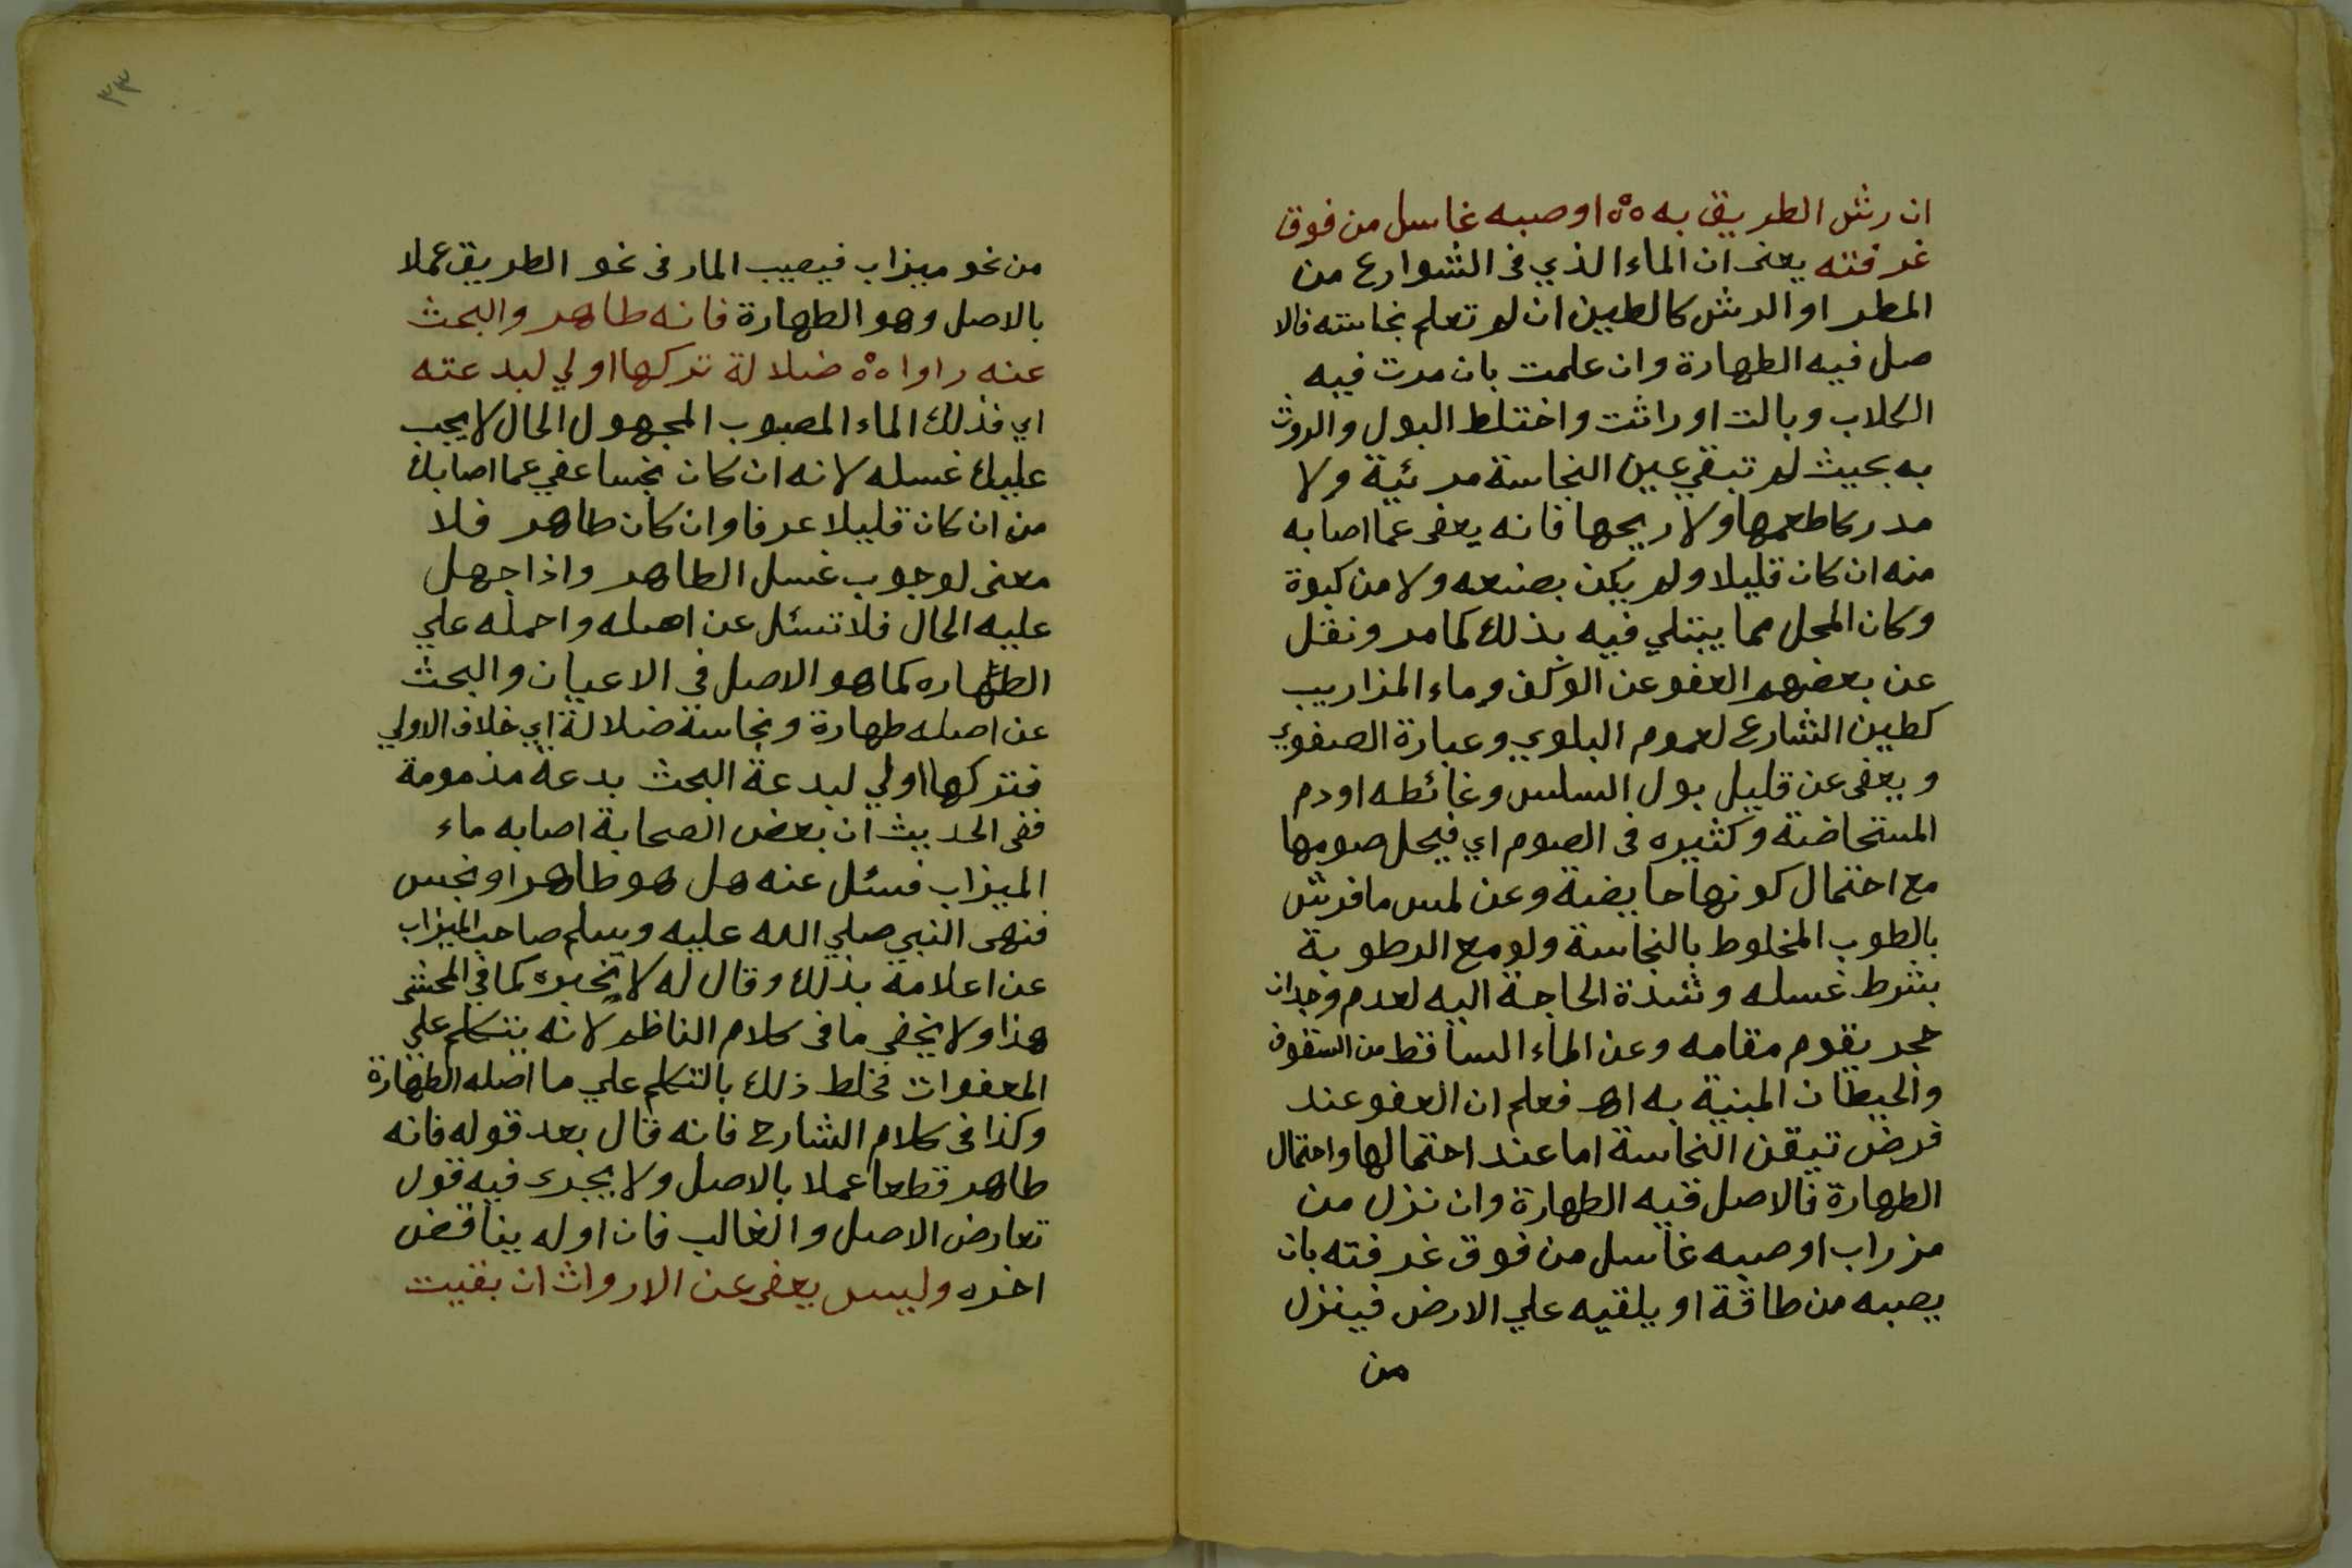 ان رش الطريق به ٥°٥ او صبه غاسل من فوق
غرفته يعنى ان الماء الذي فى الشوارع من
المطر او الرش كالطين ان لم تعلم نجاسته فالا
صل فيه الطهارة وان علمت بان مرت فيه
الكلاب وبالت او راثت واختلط البول والروث
به بحيث لم تبقي عين النجاسة مرئية ولا
مدركا طعمها ولا ريحها فانه يعفى عما اصابه
منه ان كان قليلا ولم يكن بصنعه ولا من كبوة
وكان المحل مما يبتلي فيه بذلك كما مر ونقل
عن بعضهم العفو عن الوكف وماء المزاريب
كطين الشارع لعموم البلوي وعبارة الصفوي
ويعفى عن قليل بول السلس وغائطه او دم
المستحاضة وكثيره فى الصوم اي فيحل صومها
مع احتمال كونها حايضة وعن لمس ما فرش
بالطوب المخلوط بالنجاسة ولو مع الرطوبة
بشرط غسله وشدة الحاجة اليه لعدم وجدان
حجر يقوم مقامه وعن الماء الساقط من السقوف
والحيطان المبنية به اهـ فعلم ان العفو عند
فرض تيقن النجاسة اما عند احتمالها واحتمال
الطهارة فالاصل فيه الطهارة وان نزل من
مزراب او صبه غاسل من فوق غرفته بان
يصبه من طاقة او يلقيه علي الارض فينزل
من
٣٣
من نحو ميزاب فيصيب المار فى نحو الطريق عملا
بالاصل وهو الطهارة فانه طاهر والبحث
عنه راوا ٥°٥ ضلالة تركها اولي لبدعته
اي فذلك الماء المصبوب المجهول الحال لا يجب
عليك غسله لانه ان كان نجسا عفي عما اصابك
من ان كان قليلا عرفا وان كان طاهر فلا
معنى لوجوب غسل الطاهر واذا جهل
عليه الحال فلا تسئل عن اصله واحمله علي
الطهاره كما هو الاصل في الاعيان والبحث
عن اصله طهارة ونجاسة ضلالة اي خلاف الاولي
فتركها اولي لبدعة البحث بدعة مذمومة
ففى الحديث ان بعض الصحابة اصابه ماء
الميزاب فسئل عنه هل هو طاهر او نجس
فنهى النبي صلي الله عليه وسلم صاحب الميزاب
عن اعلامه بذلك وقال له لا تخبره كما في المحشى
هذا ولا يخفى ما فى كلام الناظم لانه يتكلم علي
المعفوات فخلط ذلك بالتكلم علي ما اصله الطهارة
وكذا فى كلام الشارح فانه قال بعد قوله فانه
طاهر قطعا عملا بالاصل ولا يجرى فيه قول
تعارض الاصل والغالب فان اوله يناقض
اخره وليس يعفى عن الارواث ان بقيت